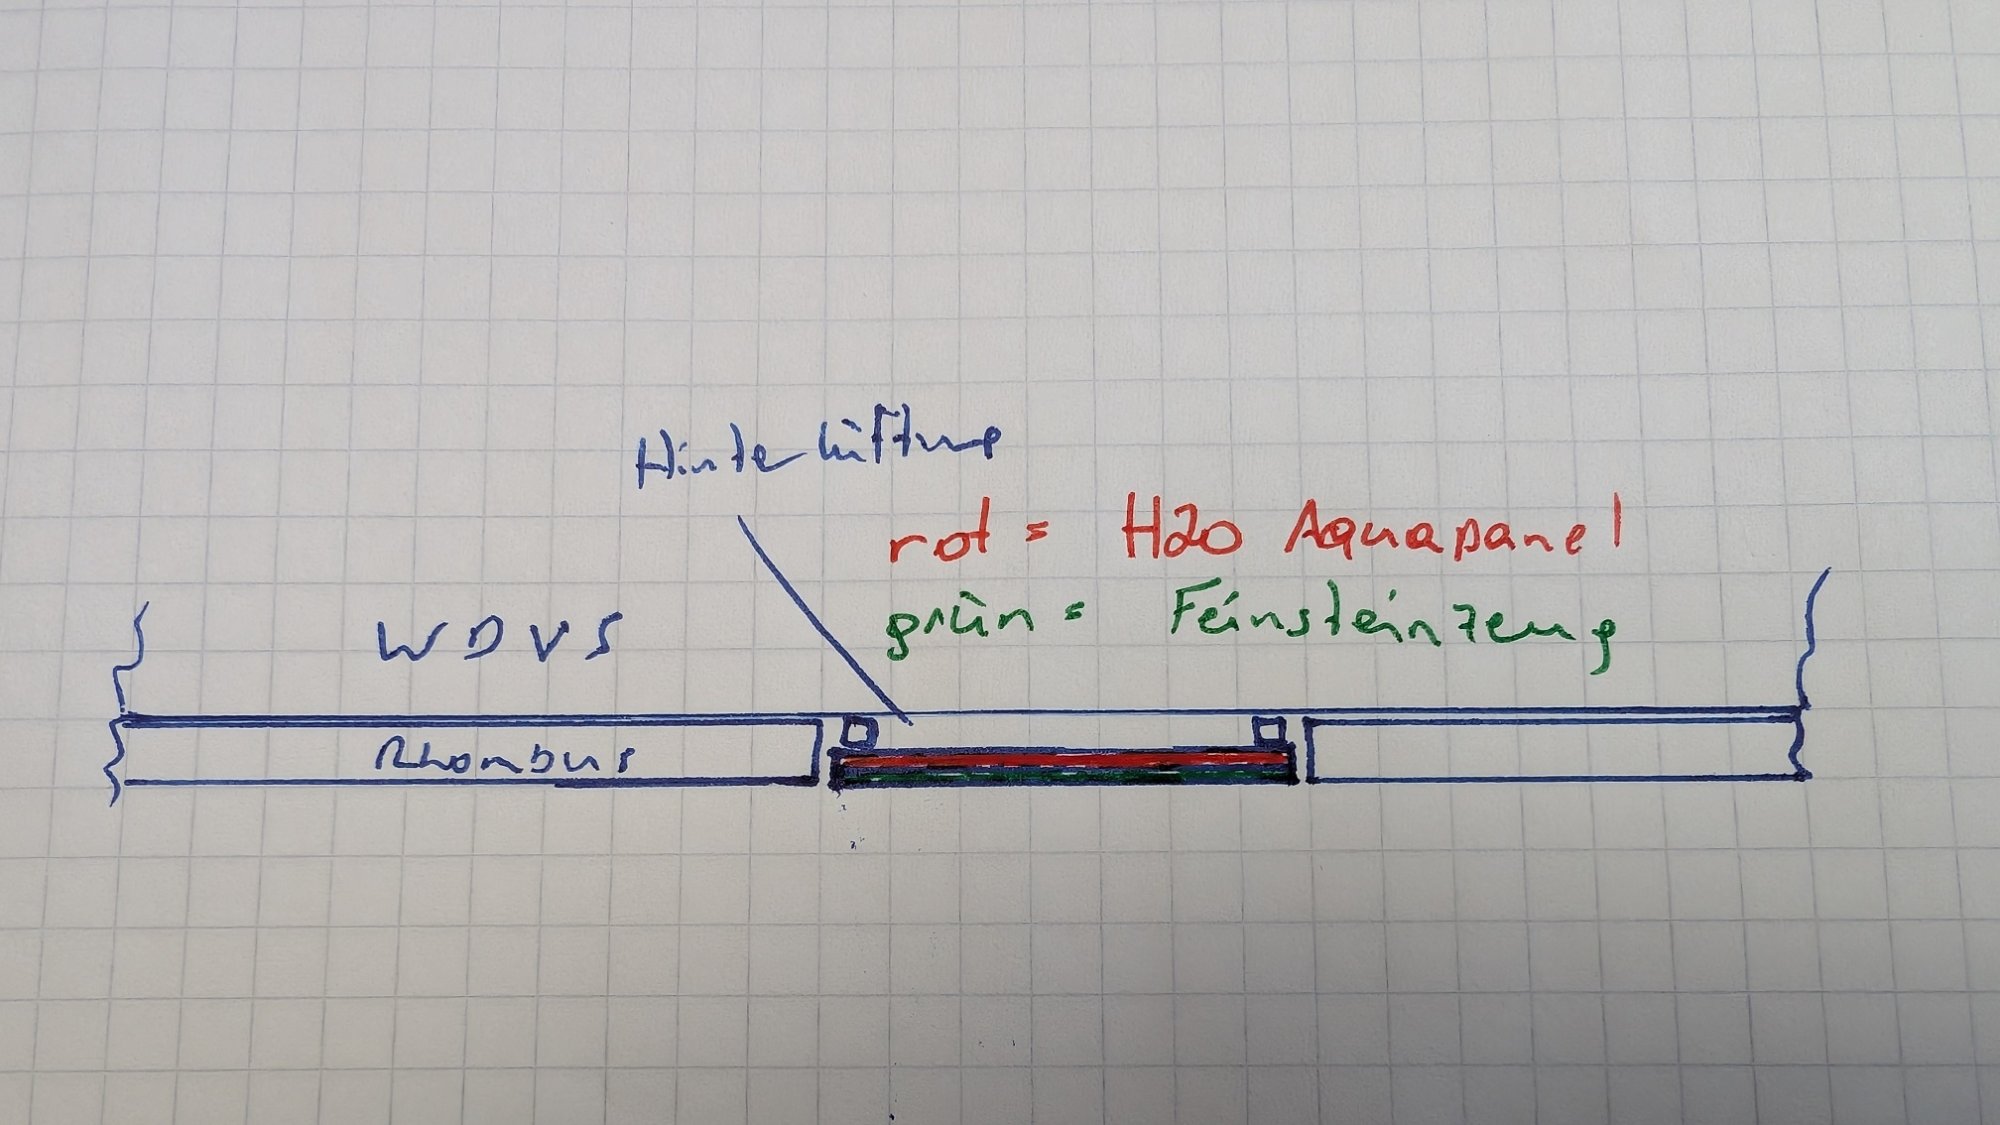 Hinterlüftung
rot = H2O Aquapanel
grün = Feinsteinzeug
WDVS
Rhombus